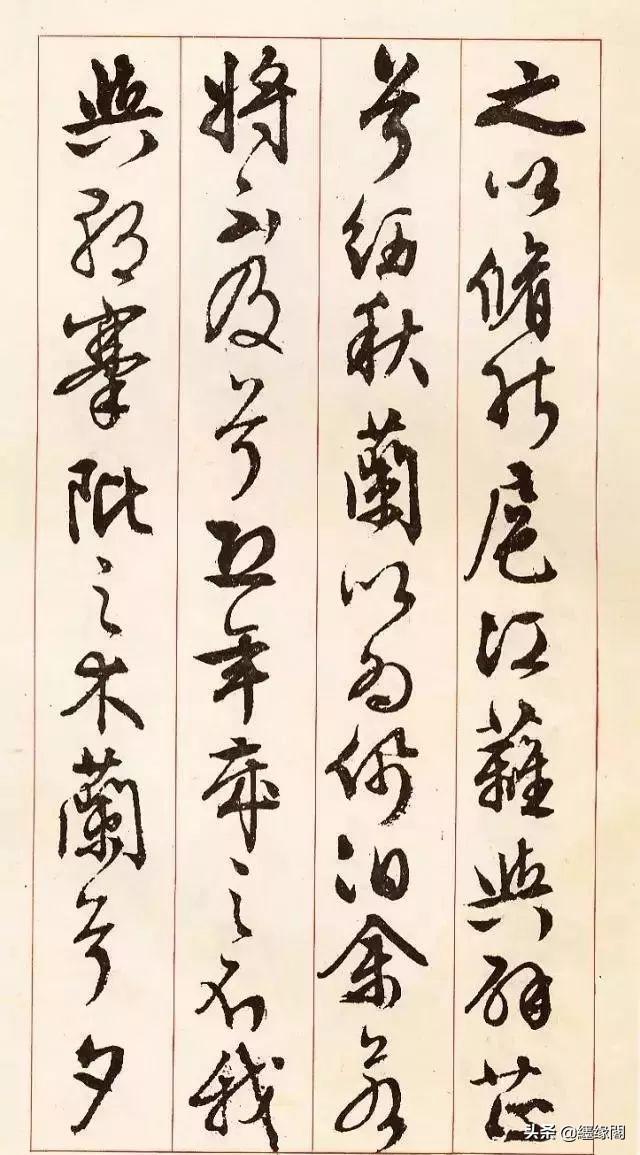 之以脩能扈江蘺與辟芷
兮紉秋蘭以為佩汩余若
將不及兮恐年歲之不我
與朝搴阰之木蘭兮夕
头条